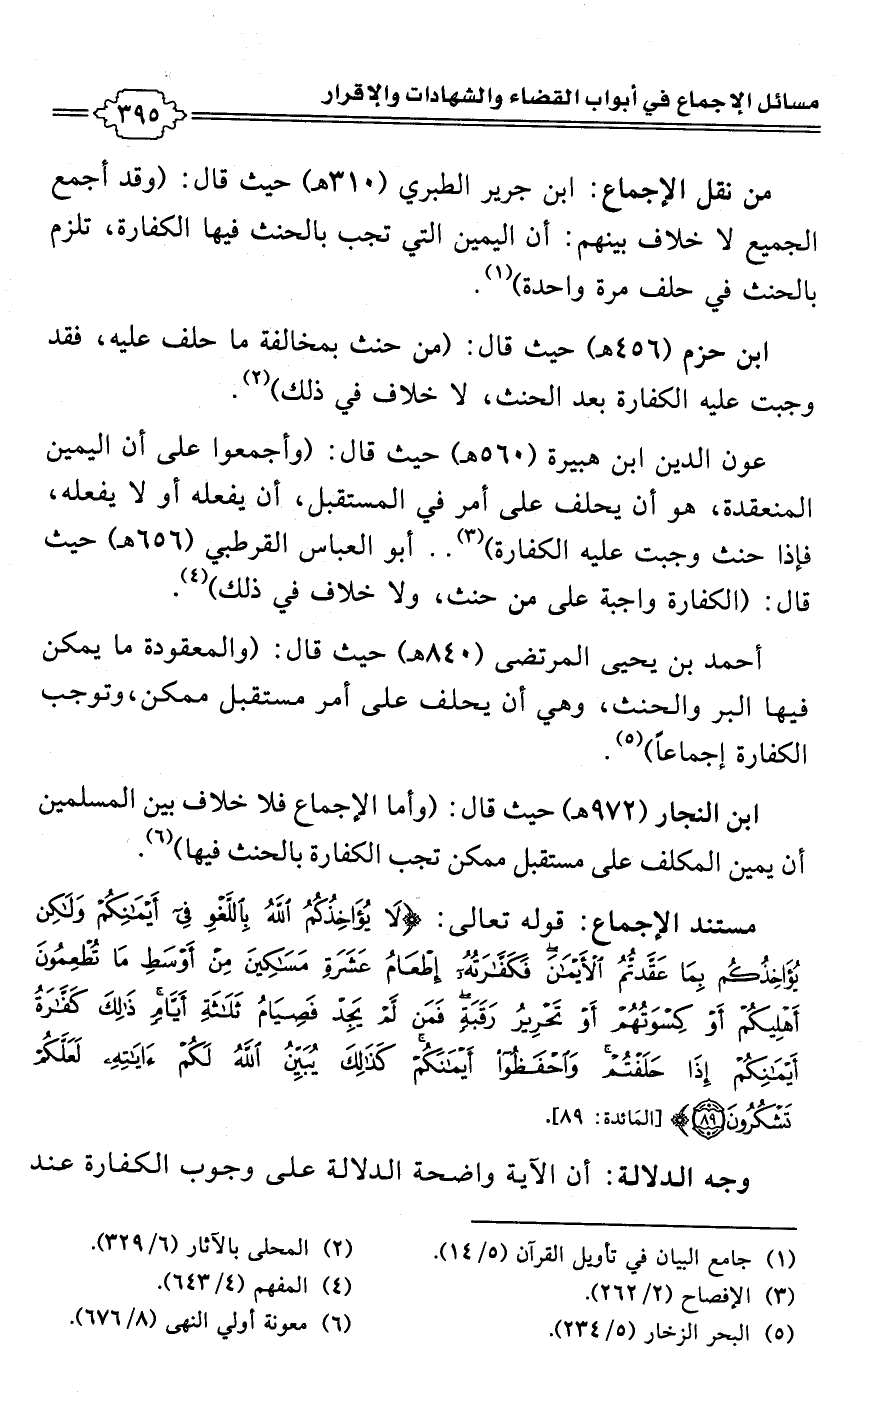 مسائل الإجماع في أبواب القضاء والشهادات والإقرار
٣٩٥
من نقل الإجماع: ابن جرير الطبري (٣١٠هـ) حيث قال: (وقد أجمع
الجميع لا خلاف بينهم: أن اليمين التي تجب بالحنث فيها الكفارة، تلزم
بالحنث في حلف مرة واحدة)(١).
ابن حزم (٤٥٦هـ) حيث قال: (من حنث بمخالفة ما حلف عليه، فقد
وجبت عليه الكفارة بعد الحنث، لا خلاف في ذلك)(٢).
عون الدين ابن هبيرة (٥٦٠هـ) حيث قال: (وأجمعوا على أن اليمين
المنعقدة، هو أن يحلف على أمر في المستقبل، أن يفعله أو لا يفعله،
فإذا حنث وجبت عليه الكفارة)(٣).. أبو العباس القرطبي (٦٥٦هـ) حيث
قال: (الكفارة واجبة على من حنث، ولا خلاف في ذلك)(٤).
أحمد بن يحيى المرتضى (٨٤٠هـ) حيث قال: (والمعقودة ما يمكن
فيها البر والحنث، وهي أن يحلف على أمر مستقبل ممكن،وتوجب
الكفارة إجماعاً)(٥).
ابن النجار (٩٧٢هـ) حيث قال: (وأما الإجماع فلا خلاف بين المسلمين
أن يمين المكلف على مستقبل ممكن تجب الكفارة بالحنث فيها)(٦).
مستند الإجماع: قوله تعالى: ﴿لَا يُؤَاخِذُكُمُ ٱللَّهُ بِٱللَّغْوِ فِىٓ أَيْمَٰنِكُمْ وَلَٰكِن
يُؤَاخِذُكُم بِمَا عَقَّدتُّمُ ٱلْأَيْمَٰنَ ۖ فَكَفَّٰرَتُهُۥٓ إِطْعَامُ عَشَرَةِ مَسَٰكِينَ مِنْ أَوْسَطِ مَا تُطْعِمُونَ
أَهْلِيكُمْ أَوْ كِسْوَتُهُمْ أَوْ تَحْرِيرُ رَقَبَةٍ ۖ فَمَن لَّمْ يَجِدْ فَصِيَامُ ثَلَٰثَةِ أَيَّامٍ ۚ ذَٰلِكَ كَفَّٰرَةُ
أَيْمَٰنِكُمْ إِذَا حَلَفْتُمْ ۚ وَٱحْفَظُوٓا۟ أَيْمَٰنَكُمْ ۚ كَذَٰلِكَ يُبَيِّنُ ٱللَّهُ لَكُمْ ءَايَٰتِهِۦ لَعَلَّكُمْ
تَشْكُرُونَ ٨٩﴾ [المَائدة: ٨٩].
وجه الدلالة: أن الآية واضحة الدلالة على وجوب الكفارة عند
(١) جامع البيان في تأويل القرآن (١٤/٥).
(٢) المحلى بالآثار (٣٢٩/٦).
(٣) الإفصاح (٢٦٢/٢).
(٤) المفهم (٦٤٣/٤).
(٥) البحر الزخار (٢٣٤/٥).
(٦) معونة أولي النهى (٦٧٦/٨).